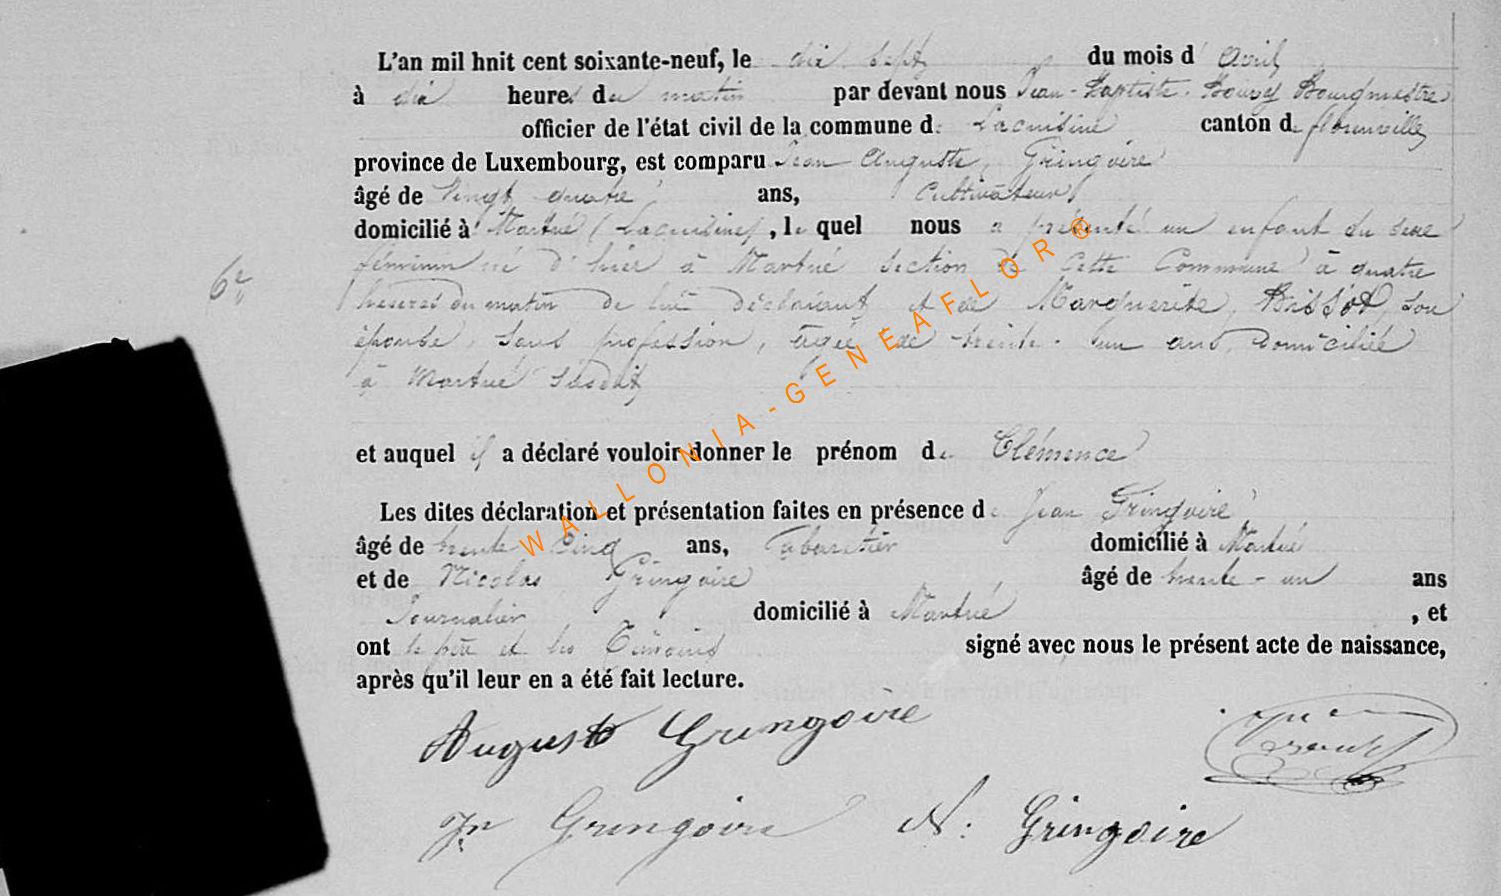 L'an mil hnit cent soixante-neuf, le dix sept du mois d' avril
à dix heures du matin par devant nous Jean-Baptiste Bourgmestre
officier de l'état civil de la commune de Lacuisine canton de florenville
province de Luxembourg, est comparu Jean Auguste, Gringoire
âgé de vingt quatre ans, Cultivateur
domicilié à Martué (Lacuisine), le quel nous a présenté un enfant du sexe
féminin né d'hier à Martué section de cette Commune à quatre
6e
heures du matin de lui déclarant et de Marguerite, Brissot, son
épouse, sans profession, âgée de trente-un ans, domiciliée
à Martué susdit
et auquel il a déclaré vouloir donner le prénom de Clémence
Les dites déclaration et présentation faites en présence de Jean Gringoire
âgé de trente cinq ans, Cabaretier domicilié à Martué
et de Nicolas Gringoire âgé de trente-un ans
Journalier domicilié à Martué , et
ont le père et les Témoins signé avec nous le présent acte de naissance,
après qu'il leur en a été fait lecture.
Auguste Gringoire
Jn Gringoire N. Gringoire
WALLONIA-GENEAFLOR®